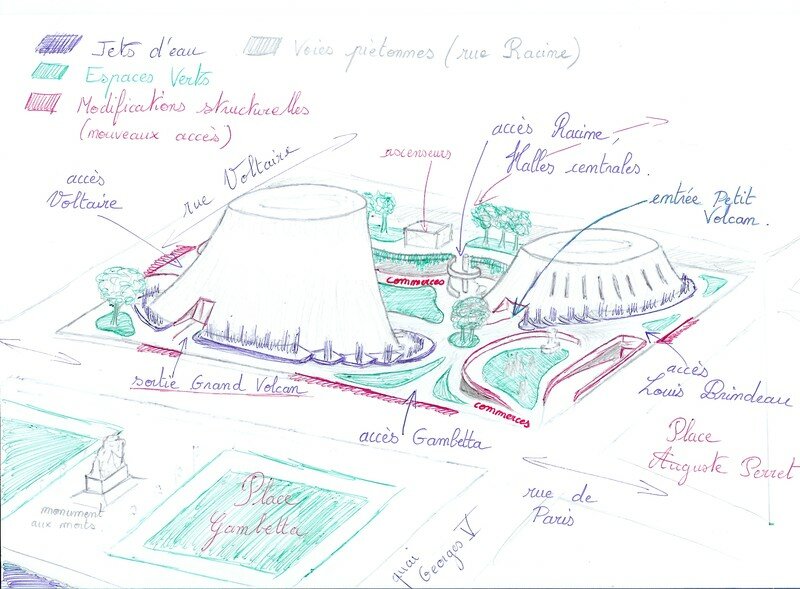 Jets d'eau
Voies piétonnes (rue Racine)
Espaces Verts
Modifications structurelles
(nouveaux accès)
rue Voltaire
ascenseurs
accès Racine,
Halles centrales.
accès
Voltaire
entrée Petit
Volcan.
commerces
sortie Grand Volcan
accès
Louis Brindeau
commerces
accès Gambetta
Place
Auguste Perret
Place
Gambetta
rue de
Paris
monument
aux morts
quai
Georges V